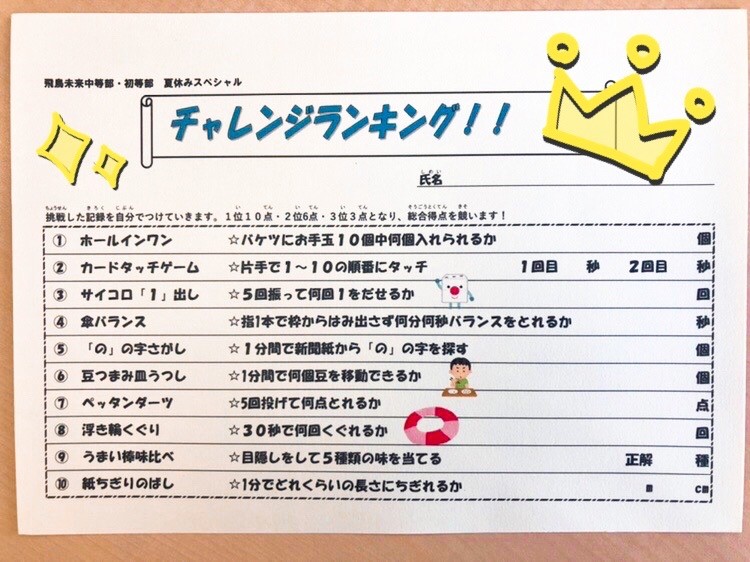 飛鳥未来中等部・初等部　夏休みスペシャル
チャレンジランキング！！
しめい
氏名
ちょうせん　きろく　じぶん　い　てん　い　てん　い　てん　そうごうとくてん　きそ
挑戦した記録を自分でつけていきます。１位１０点・２位6点・３位３点となり、総合得点を競います！
① ホールインワン ☆バケツにお手玉１０個中何個入れられるか 個
② カードタッチゲーム ☆片手で１～１０の順番にタッチ １回目 秒 ２回目 秒
③ サイコロ「１」出し ☆５回振って何回１をだせるか 回
④ 傘バランス ☆指1本で枠からはみ出さず何分何秒バランスをとれるか 秒
⑤ 「の」の字さがし ☆１分間で新聞紙から「の」の字を探す 個
⑥ 豆つまみ皿うつし ☆1分間で何個豆を移動できるか 個
⑦ ペッタンダーツ ☆5回投げて何点とれるか 点
⑧ 浮き輪くぐり ☆３０秒で何回くぐれるか 回
⑨ うまい棒味比べ ☆目隠しをして５種類の味を当てる 正解 種
⑩ 紙ちぎりのばし ☆1分でどれくらいの長さにちぎれるか m cm